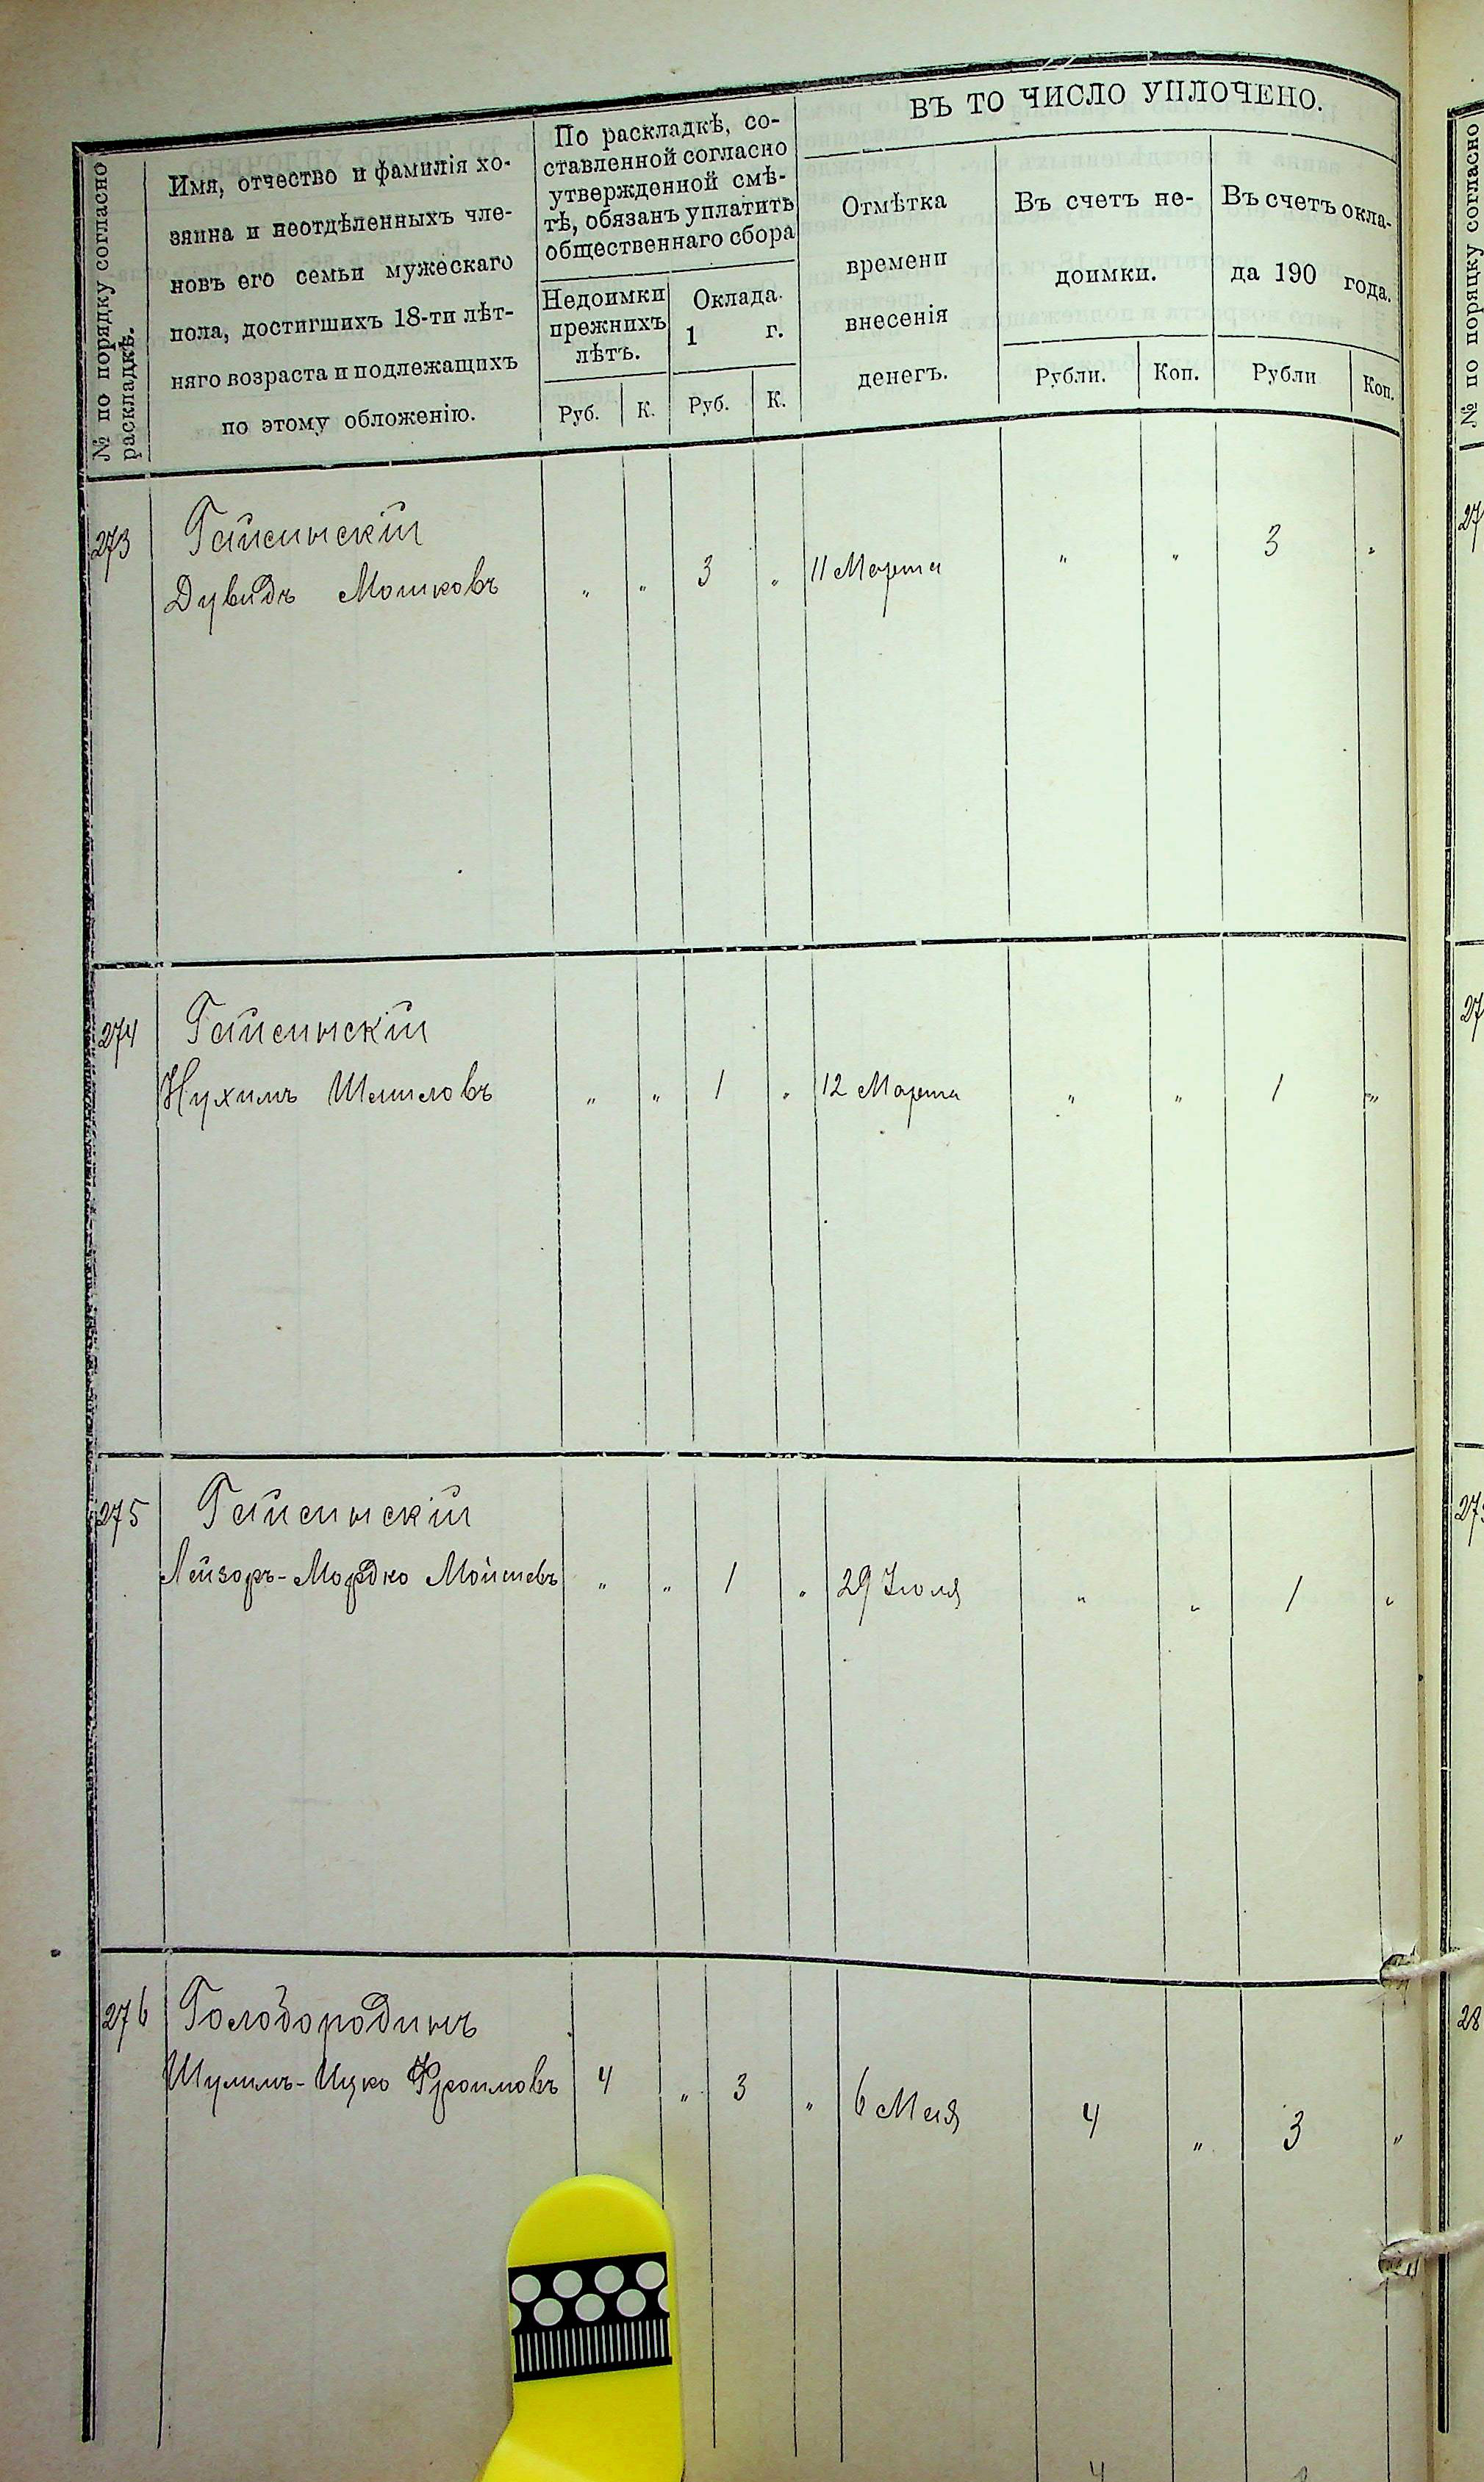 № по порядку согласно
раскладкѣ.
Имя, отчество и фамилія хо-
зяина и неотдѣленныхъ чле-
новъ его семьи мужескаго
пола, достигшихъ 18-ти лѣт-
няго возраста и подлежащихъ
по этому обложенію.
По раскладкѣ, со-
ставленной согласно
утвержденной смѣ-
тѣ, обязанъ уплатить
общественнаго сбора
Недоимки
прежнихъ
лѣтъ.
Оклада.
1 г.
Руб. К. Руб. К.
ВЪ ТО ЧИСЛО УПЛОЧЕНО.
Отмѣтка
времени
внесенія
денегъ.
Въ счетъ не-
доимки.
Въ счетъ окла-
да 190 года.
Рубли. Коп. Рубли Коп.
273 Гайсинскій
Дувидъ Мошковъ " " 3 " 11 Марта " " 3 "
274 Гайсинскій
Нухимъ Шмиловъ " " 1 " 12 Марта " " 1 "
275 Гайсинскій
Лейзоръ-Мордко Мойшевъ " " 1 " 29 Іюля " " 1 "
276 Голобородинъ
Шулимъ-Ицко Фроимовъ 4 " 3 " 6 Мая 4 " 3 "
№ по порядку согласно